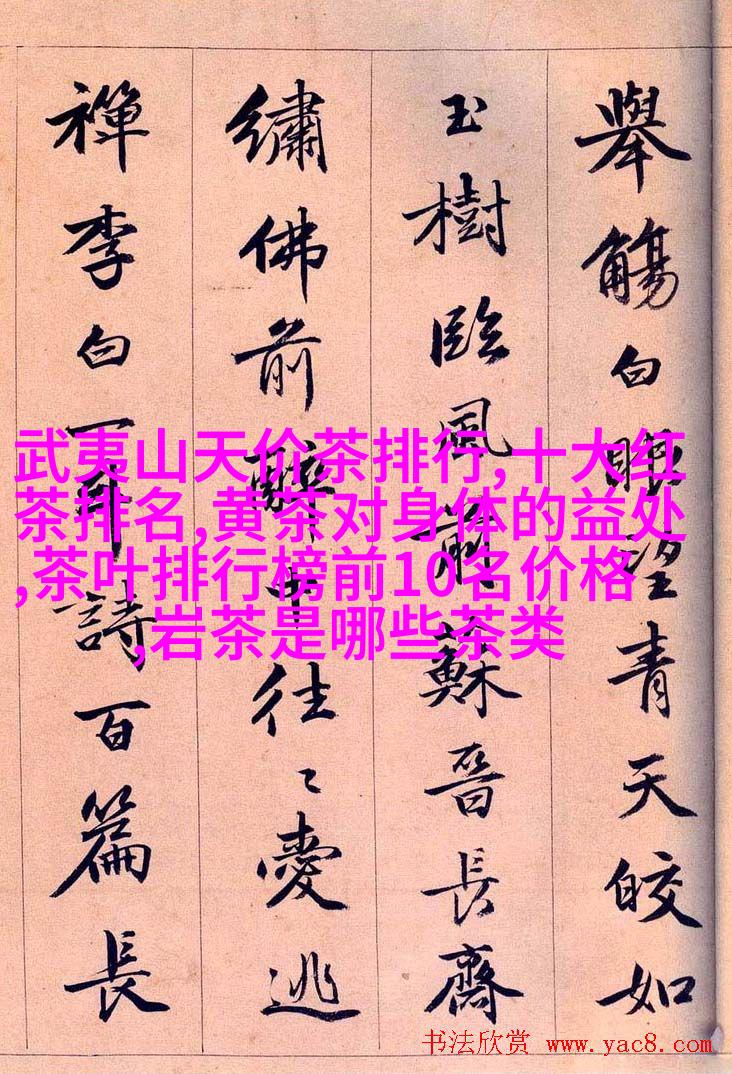 舉觴白眼望青天皎如
玉樹臨風前蘇晉長齋
繡佛前醉中往〻愛逃
禪李白一斗詩百篇長
武夷山天价茶排行,十大红
茶排名,黄茶对身体的益处
,茶叶排行榜前10名价格
,岩茶是哪些茶类
书法欣赏 www.yac8.com